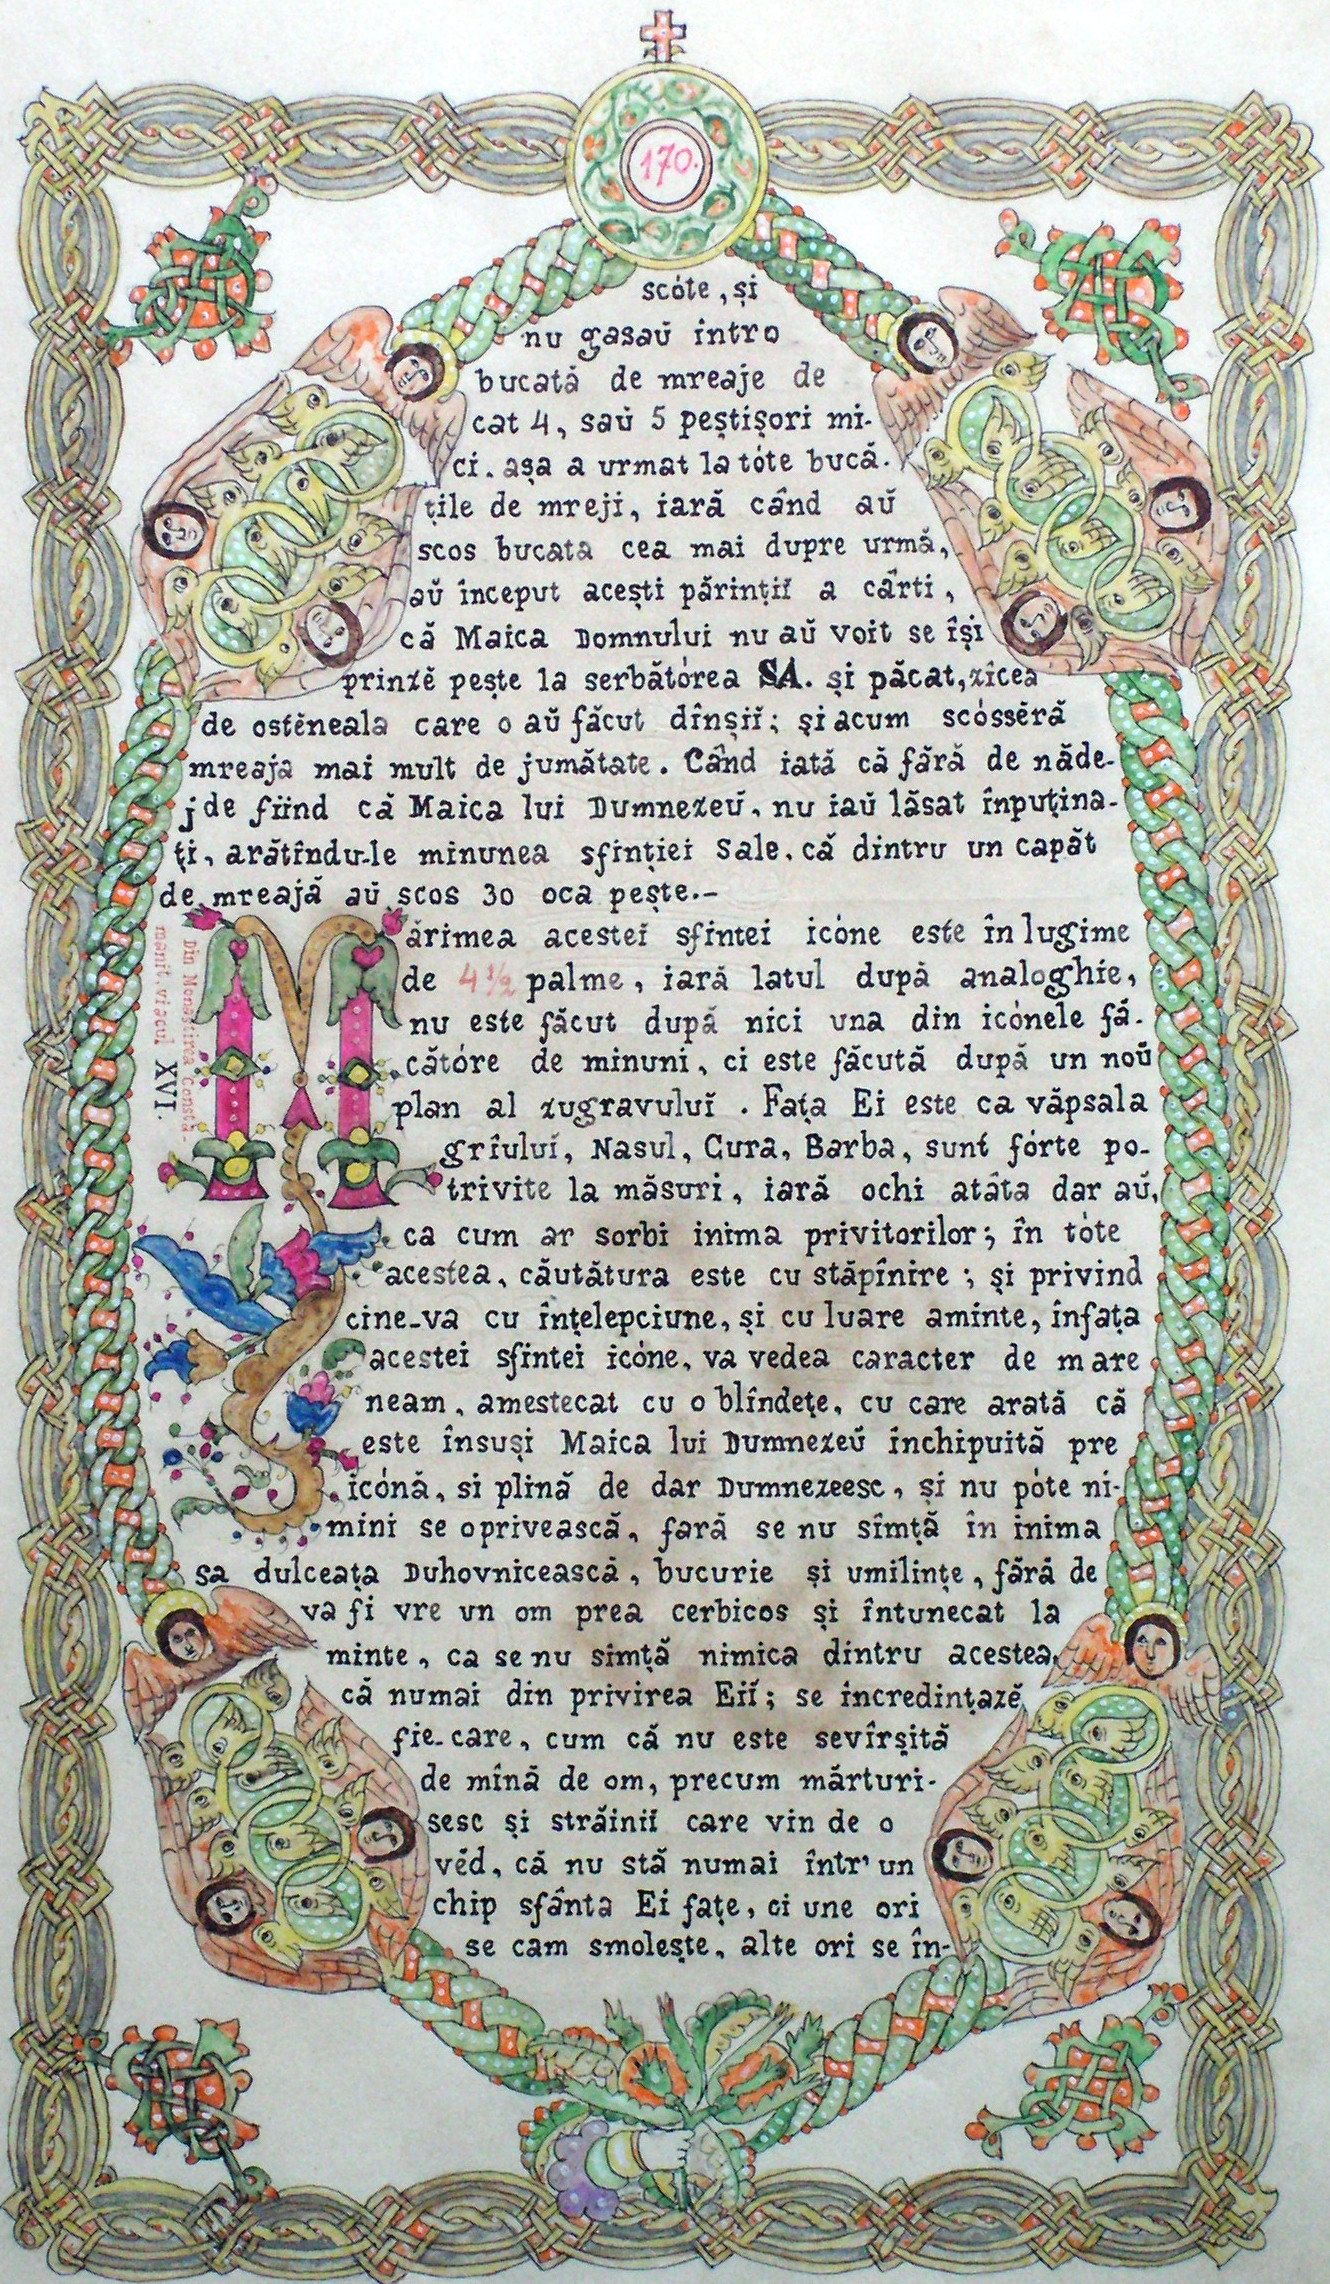 170.
scóte, și
nu gasaŭ întro
bucată de mreaje de
cat 4, saŭ 5 peștișori mi-
ci. așa a urmat la tóte bucă-
țile de mreji, iară când aŭ
scos bucata cea mai dupre urmă,
aŭ început acești părințiĭ a cârti,
că Maica Domnului nu aŭ voit se își
prinzĕ pește la serbătórea SA. și păcat, zicea
de ostĕneala care o aŭ făcut dînșiĭ; și acum scóssĕră
mreaja mai mult de jumătate. Când iată că fără de năde-
jde fiind că Maica lui Dumnezeŭ, nu iaŭ lăsat înpuțina-
ți, arătîndu-le minunea sfinției Sale. că dintru un capăt
de mreajă aŭ scos 30 oca pește.-
Mărimea acesteĭ sfintei icóne este în lugime
de 4 ½ palme, iară latul după analoghie,
nu este făcut după nici una din icónele fă-
cătóre de minuni, ci este făcută după un noŭ
plan al zugravuluĭ. Fața Ei este ca văpsala
grîuluĭ, Nasul, Gura, Barba, sunt fórte po-
trivite la măsuri, iară ochi atâta dar aŭ,
ca cum ar sorbi inima privitorilor; în tóte
acestea, căutătura este cu stăpînire; și privind
cine-va cu înțelepciune, și cu luare aminte, înfața
acestei sfintei icóne, va vedea caracter de mare
neam, amestecat cu o blîndețe, cu care arată că
este însuși Maica lui Dumnezeŭ închipuită pre
icónă, si plină de dar Dumnezeesc, și nu póte ni-
mini se o privească, fară se nu sîmță în inima
sa dulceața Duhovnicească, bucurie și umilințe, fără de
va fi vre un om prea cerbicos și întunecat la
minte, ca se nu simță nimica dintru acestea,
că numai din privirea Eiĭ; se încredințazĕ
fie-care, cum că nu este sevîrșită
de mînă de om, precum mărturi-
sesc și străiniĭ care vin de o
vĕd, că nu stă numai într' un
chip sfânta Ei fațe, ci une ori
se cam smolește, alte ori se în-
Din Monastirea Consta-
manit, viacul XVI.